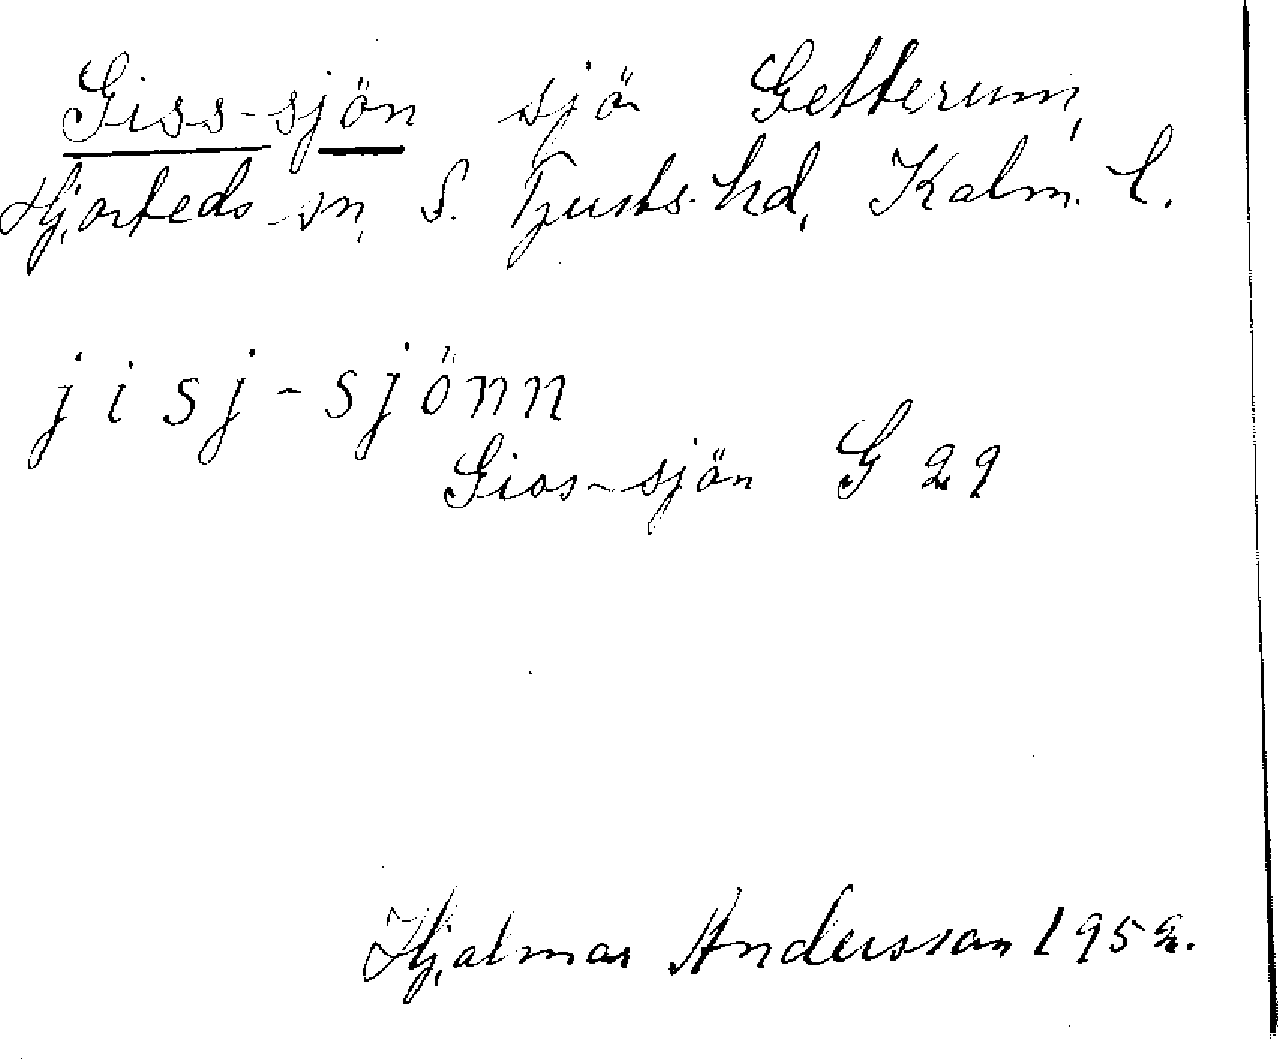 Giss-sjön sjö Getterum,
Hjorteds sn, S. Tjusts hd, Kalm. l.
jisj-sjönn
Giss-sjön G 29
Hjalmar Andersson 1952.